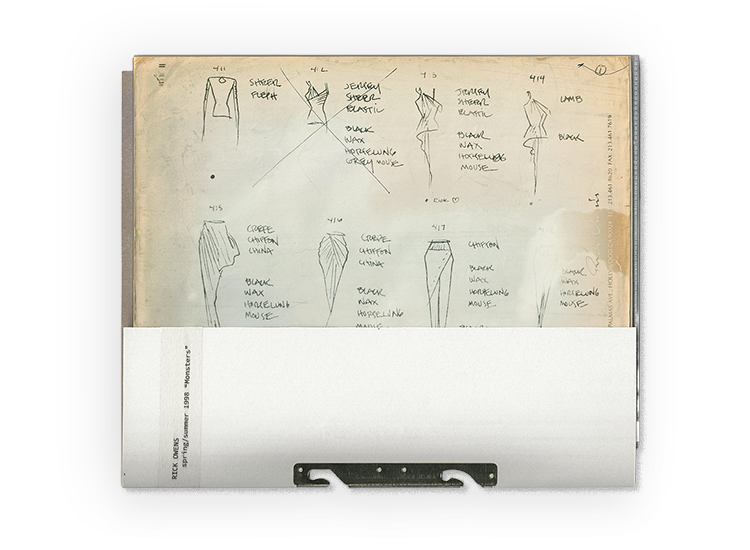 411
SHEER
FLESH
412
JERSEY
SHEER
ELASTIC
BLACK
WAX
HORSELUNG
MOUSE
413
JERSEY
SHEER
ELASTIC
BLACK
WAX
HORSELUNG
MOUSE
414
LAMB
BLACK
1
415
CREPE
CHIFFON
CHINA
BLACK
WAX
HORSELUNG
MOUSE
416
CREPE
CHIFFON
CHINA
BLACK
WAX
HORSELUNG
MOUSE
417
CHIFFON
BLACK
WAX
HORSELUNG
MOUSE
BLACK
BLACK
WAX
HORSELUNG
MOUSE
PALMAS AVE. HOLLYWOOD 213.461.8620 FAX: 213.461.7619
RICK OWENS
spring/summer 1998 "Monsters"